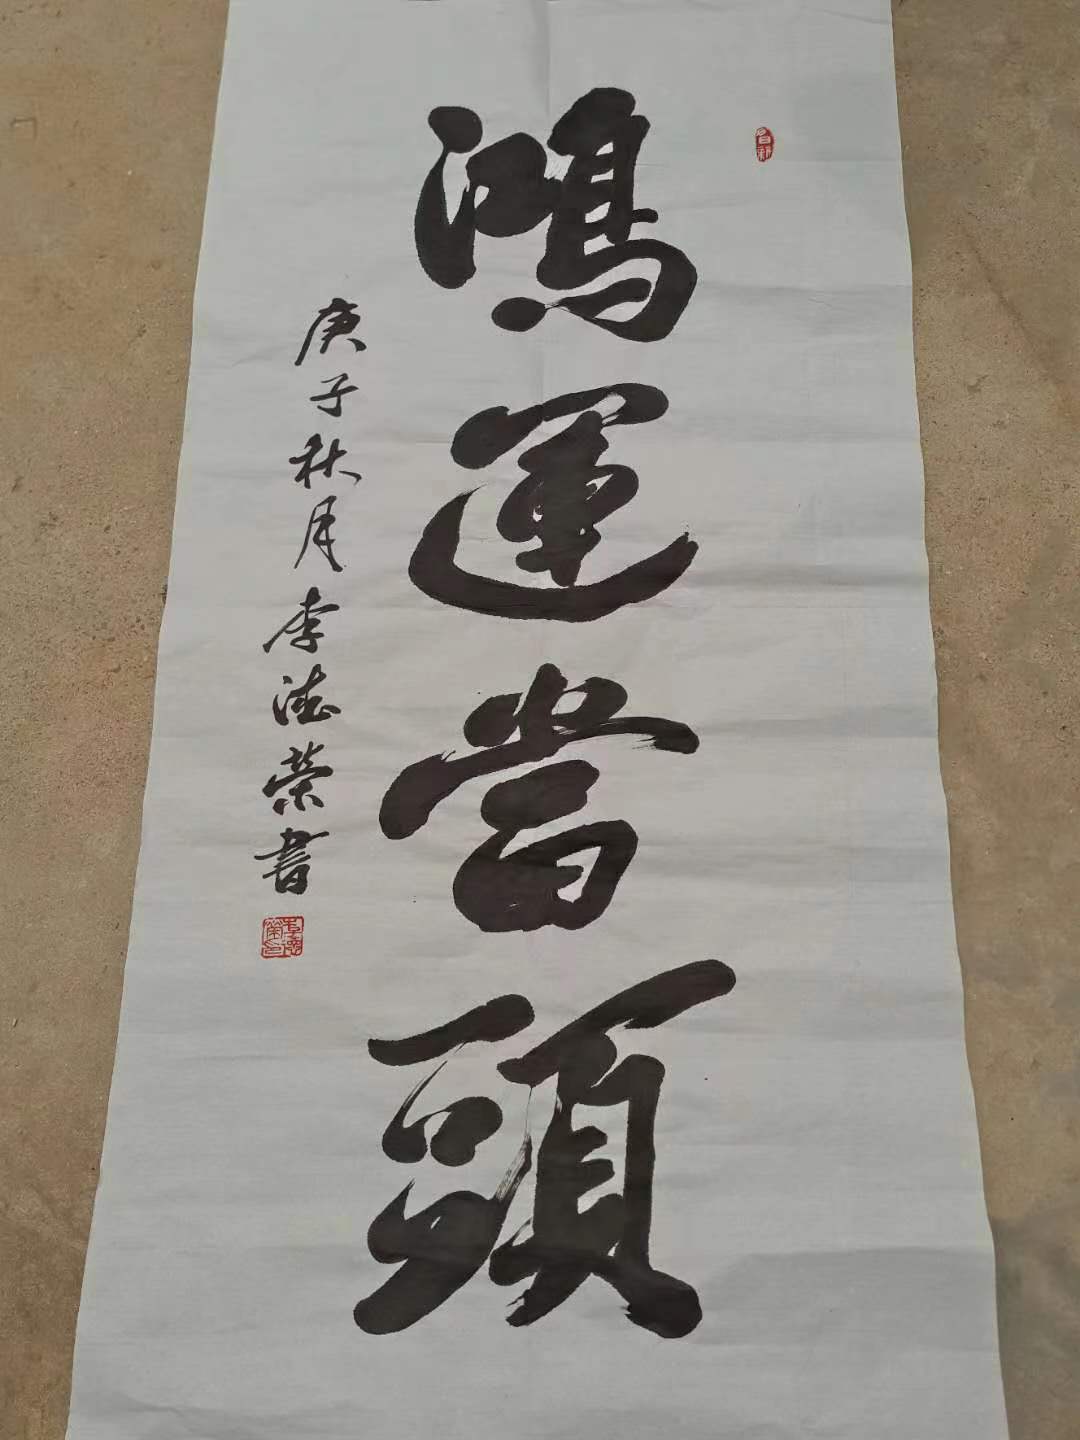 鴻運當頭
庚子秋月李德榮書